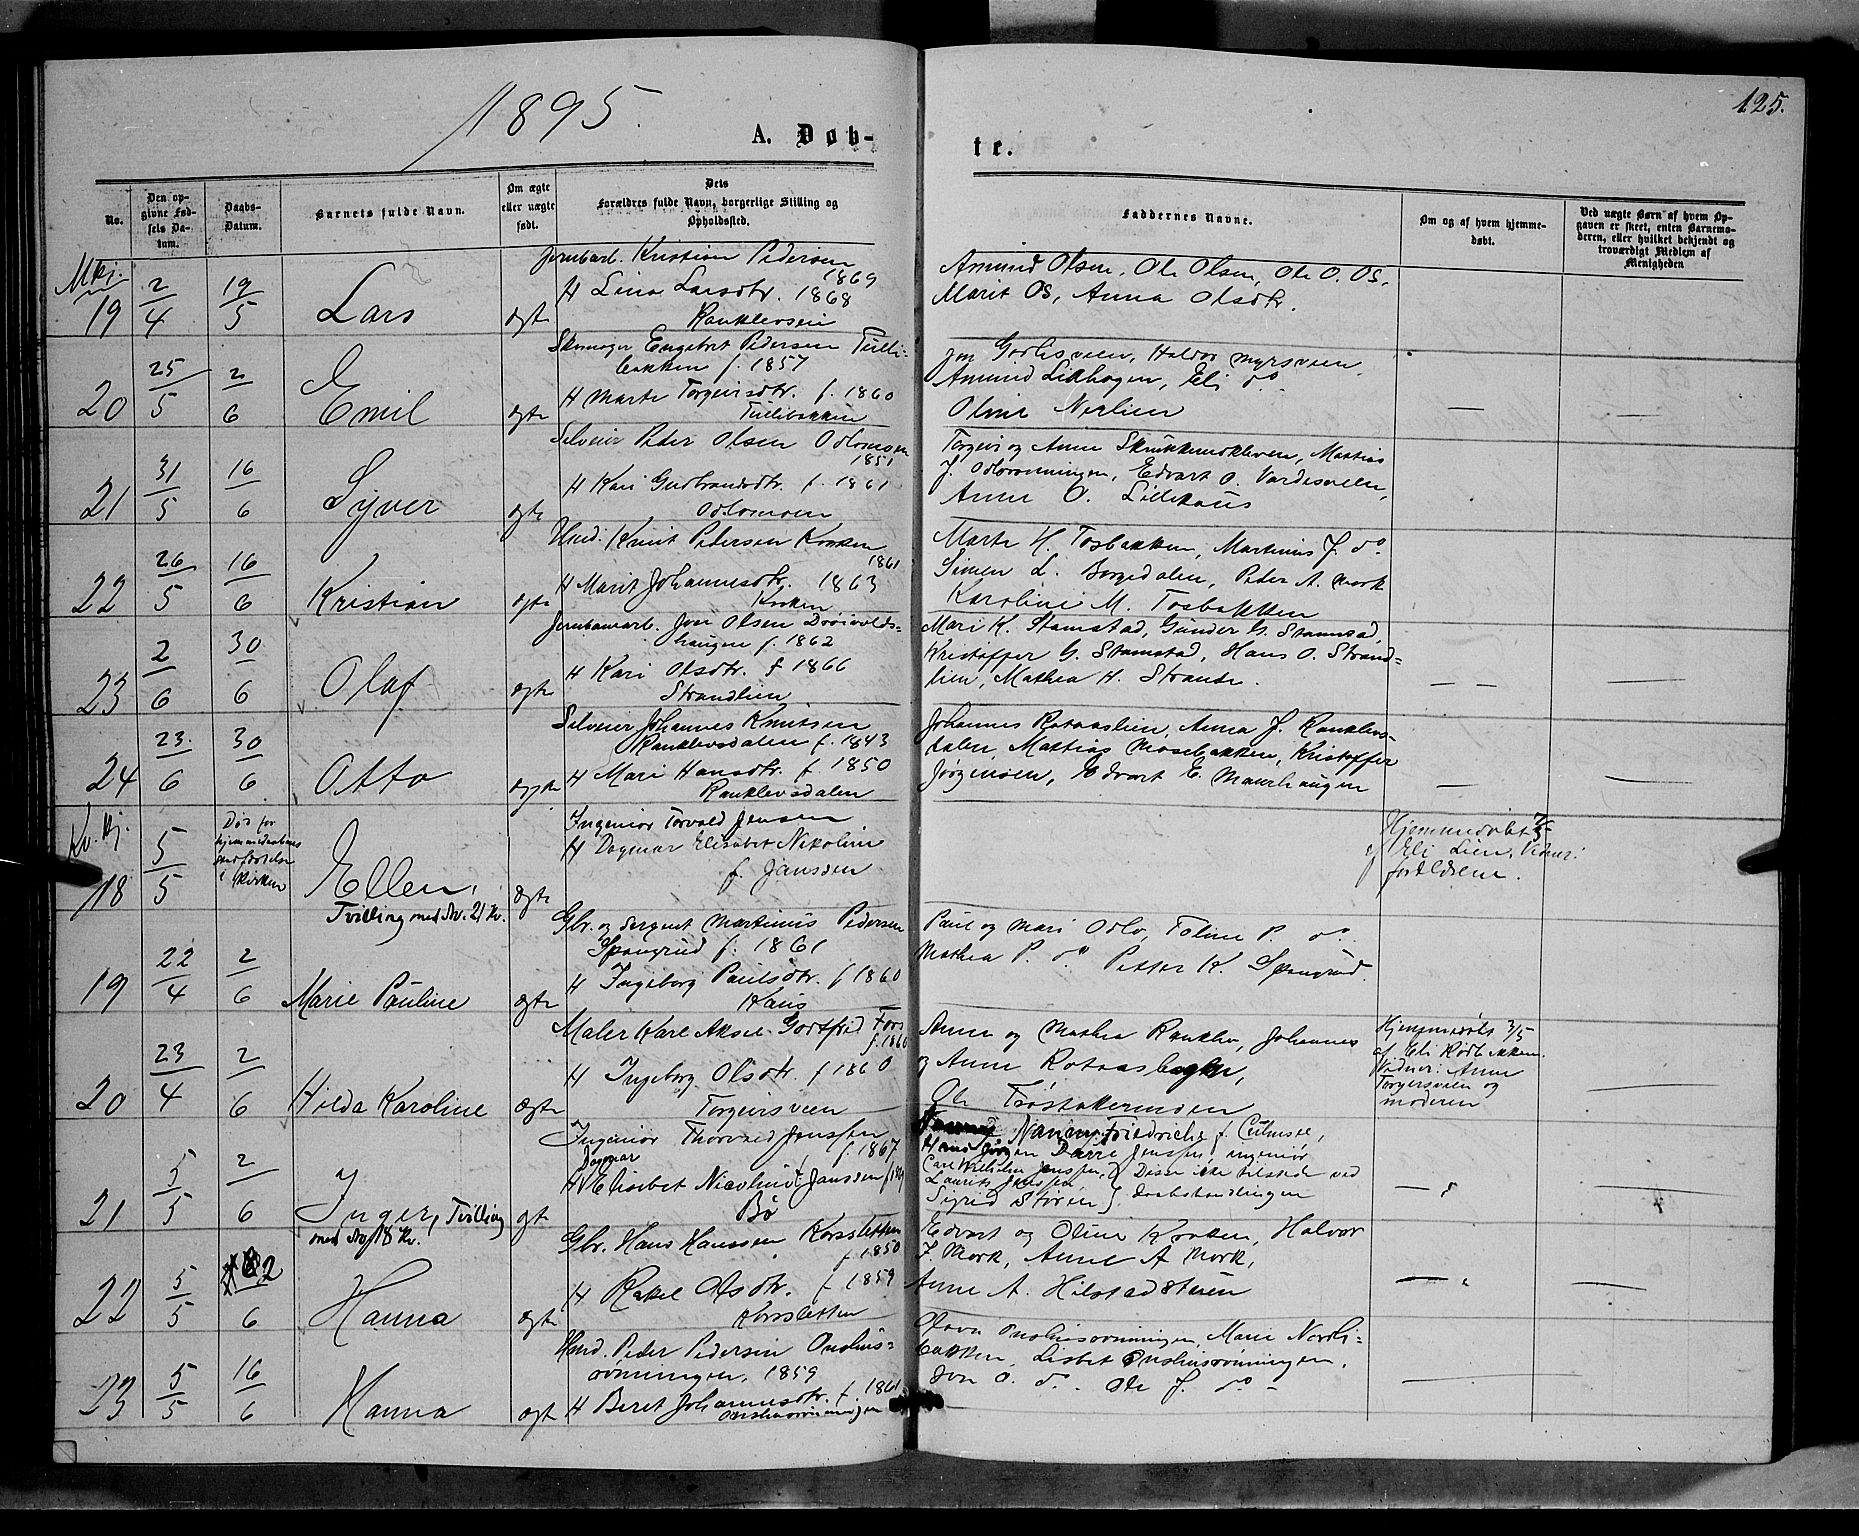 1895.
125.
A. Døb-
te.
No.
Den op-
givne Fød-
sels Da-
tum.
Daabs-
Datum.
Barnets fulde Navn.
Om ægte
eller uægte
født.
Dets
Forældres fulde Navn, borgerlige Stilling og
Opholdssted.
Faddernes Navne.
Om og af hvem hjemme-
døbt.
Ved uægte Børn af hvem Op-
gaven er skeet, enten Barnemo-
deren, eller hvilket bekjendt og
troværdigt Medlem af
Menigheden
Mkj.
19
2/4
19/5
Lars
ægte
Jernbarb. Kristian Pedersen
1869
H Lina Larsdtr. 1868
Ranklevseie
Amund Olsen, Ole Olsen, Ole O. Os,
Marit Os, Anna Olsdtr.
20
25/5
2/6
Emil
ægte
Skomager Engebret Pedersen Tulli-
bakken f. 1857
H Marte Torgeirsdtr. f. 1860
Tullibakken
Amund Lidhagen, Eli do
Oline Nerlien
21
31/5
16/6
Syver
ægte
Selveier Peder Olsen Odlomoen
1851
H Kari Gudbrandsdtr. f. 1861
Odlomoen
Torgeir og Anne Skrukkemokleven, Mattias
J. Odloronningen, Edvart O. Vardesveien,
Anne O. Lillehaus
22
26/5
16/6
Kristian
ægte
Hmd: Knut Pedersen Kroken
1861
H Marit Johannesdtr. 1863
Kroken
Marte H. Tosbakken, Martinius J. do
Simen L. Borgedalen, Peder A. Mork
Karoline M. Tosbakken
23
2/6
30/6
Olaf
ægte
Jernbanearb. Jon Olsen Dröivolds-
haugen f. 1862
H Kari Olsdtr. f 1866
Strandlien
Mari K. Stamstad, Gunder G. Stamstad,
Kristoffer G. Stamstad, Hans O. Strand-
lien, Mathea H. Strande.
24
23/6
30/6
Otto
ægte
Selveier Johannes Knutsen
Ranklevsdalen f. 1843
H Mari Hansdtr. f. 1850
Ranklevsdalen
Johannes Rotaaslien, Anna J. Ranklevs-
dalen, Mattias Mosebakken, Kristoffer
Jörgensen, Edvart E. Maurhaugen
Kv. kj.
18
5/5
Død for
hjemmedaabens
stadfæstelse
i Kirken
Ellen,
Tvilling med No. 21 Kv.
ægte
Ingeniør Torvald Jensen
H Dagmar Elisabet Nikoline
f. Janssen
Hjemmedøbt 7/5
af Eli Lien, Vidner:
forældrene.
19
22/4
2/6
Marie Pauline
ægte
Gbr. og Sergent Martinus Pedersen
Spangrud f. 1861
H Ingeborg Paulsdtr. f 1860
Haus
Paul og Mari Odlo, Toline P. do.
Mathea P. do Petter K. Spangrud.
20
23/4
2/6
Hilda Karoline
ægte
Maler Karl Aksel Gottfrid Fors
f. 1860
H Ingeborg Olsdtr. f 1860
Torgeirsveen
Anne og Mathea Ranklev, Johannes
og Anne Rotaasbagken,
Hjemmedöbt 3/5
af Eli Rödbakken.
Vidner: Anne
Torgersveien og
moderen
21
5/5
2/6
Inger, Tvilling
med No 18 Kv.
ægt
Ingeniør Thorvald Jenssen
f. 1867
Dagmar
H Elisabet Nicoline f. Janssen
Bö
Nanny Friedrichs f. Culmsee,
Hans Jörgen Darre Jenssen, ingeniør
Carl Wilhelm Jenssen, } Disse ikke tilstede ved
Laurits Jenssen,
Sigrid Stören } daabshandlingen
22
5/5
2/6
Hanna
ægte
Gbr. Hans Hanssen Korssletten
f. 1850
H Rakel Olsdtr. f 1859
Korssletten
Edvart og Oline Kroken, Halvor
J. Mork, Anne A Mork,
Anne A. Hilstadstuen
23
5/5
16/6
Hanna
ægt
Hmd. Peder Pedersen Onshus-
rönningen. 1859
H Beret Johannesdtr. f 1861
Onshusrönningen
Olava Onshusrönningen, Marie Nordli-
bakken, Lisbet Onshusrönningen,
Jon O. do. Ole J. do